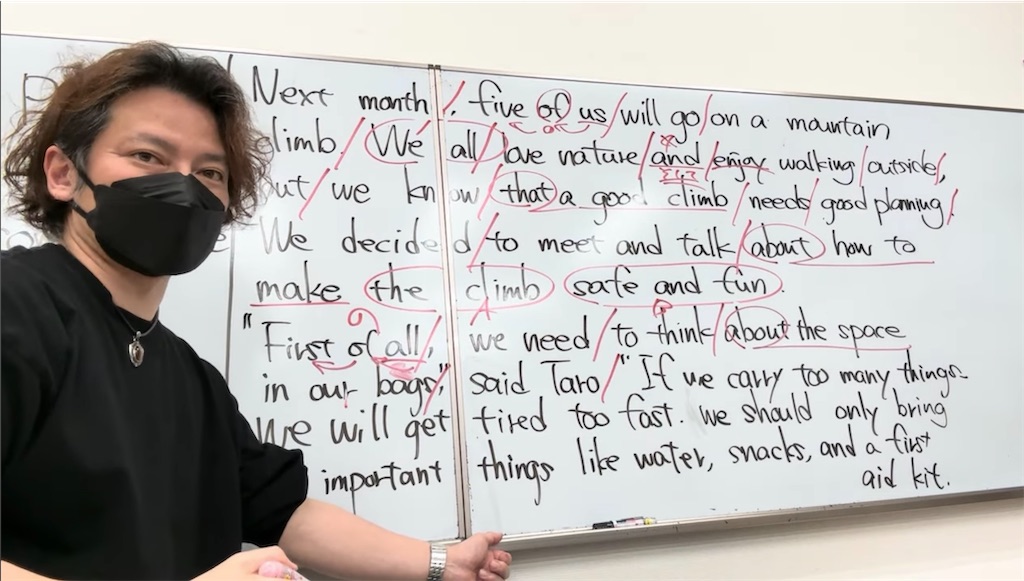 Next month, five of us will go on a mountain
climb. We all love nature and enjoy walking outside,
but we know that a good climb needs good planning.
We decided to meet and talk about how to
make the climb safe and fun.
"First of all, we need to think about the space
in our bags," said Taro. "If we carry too many things
We will get tired too fast. We should only bring
important things like water, snacks, and a first
aid kit.